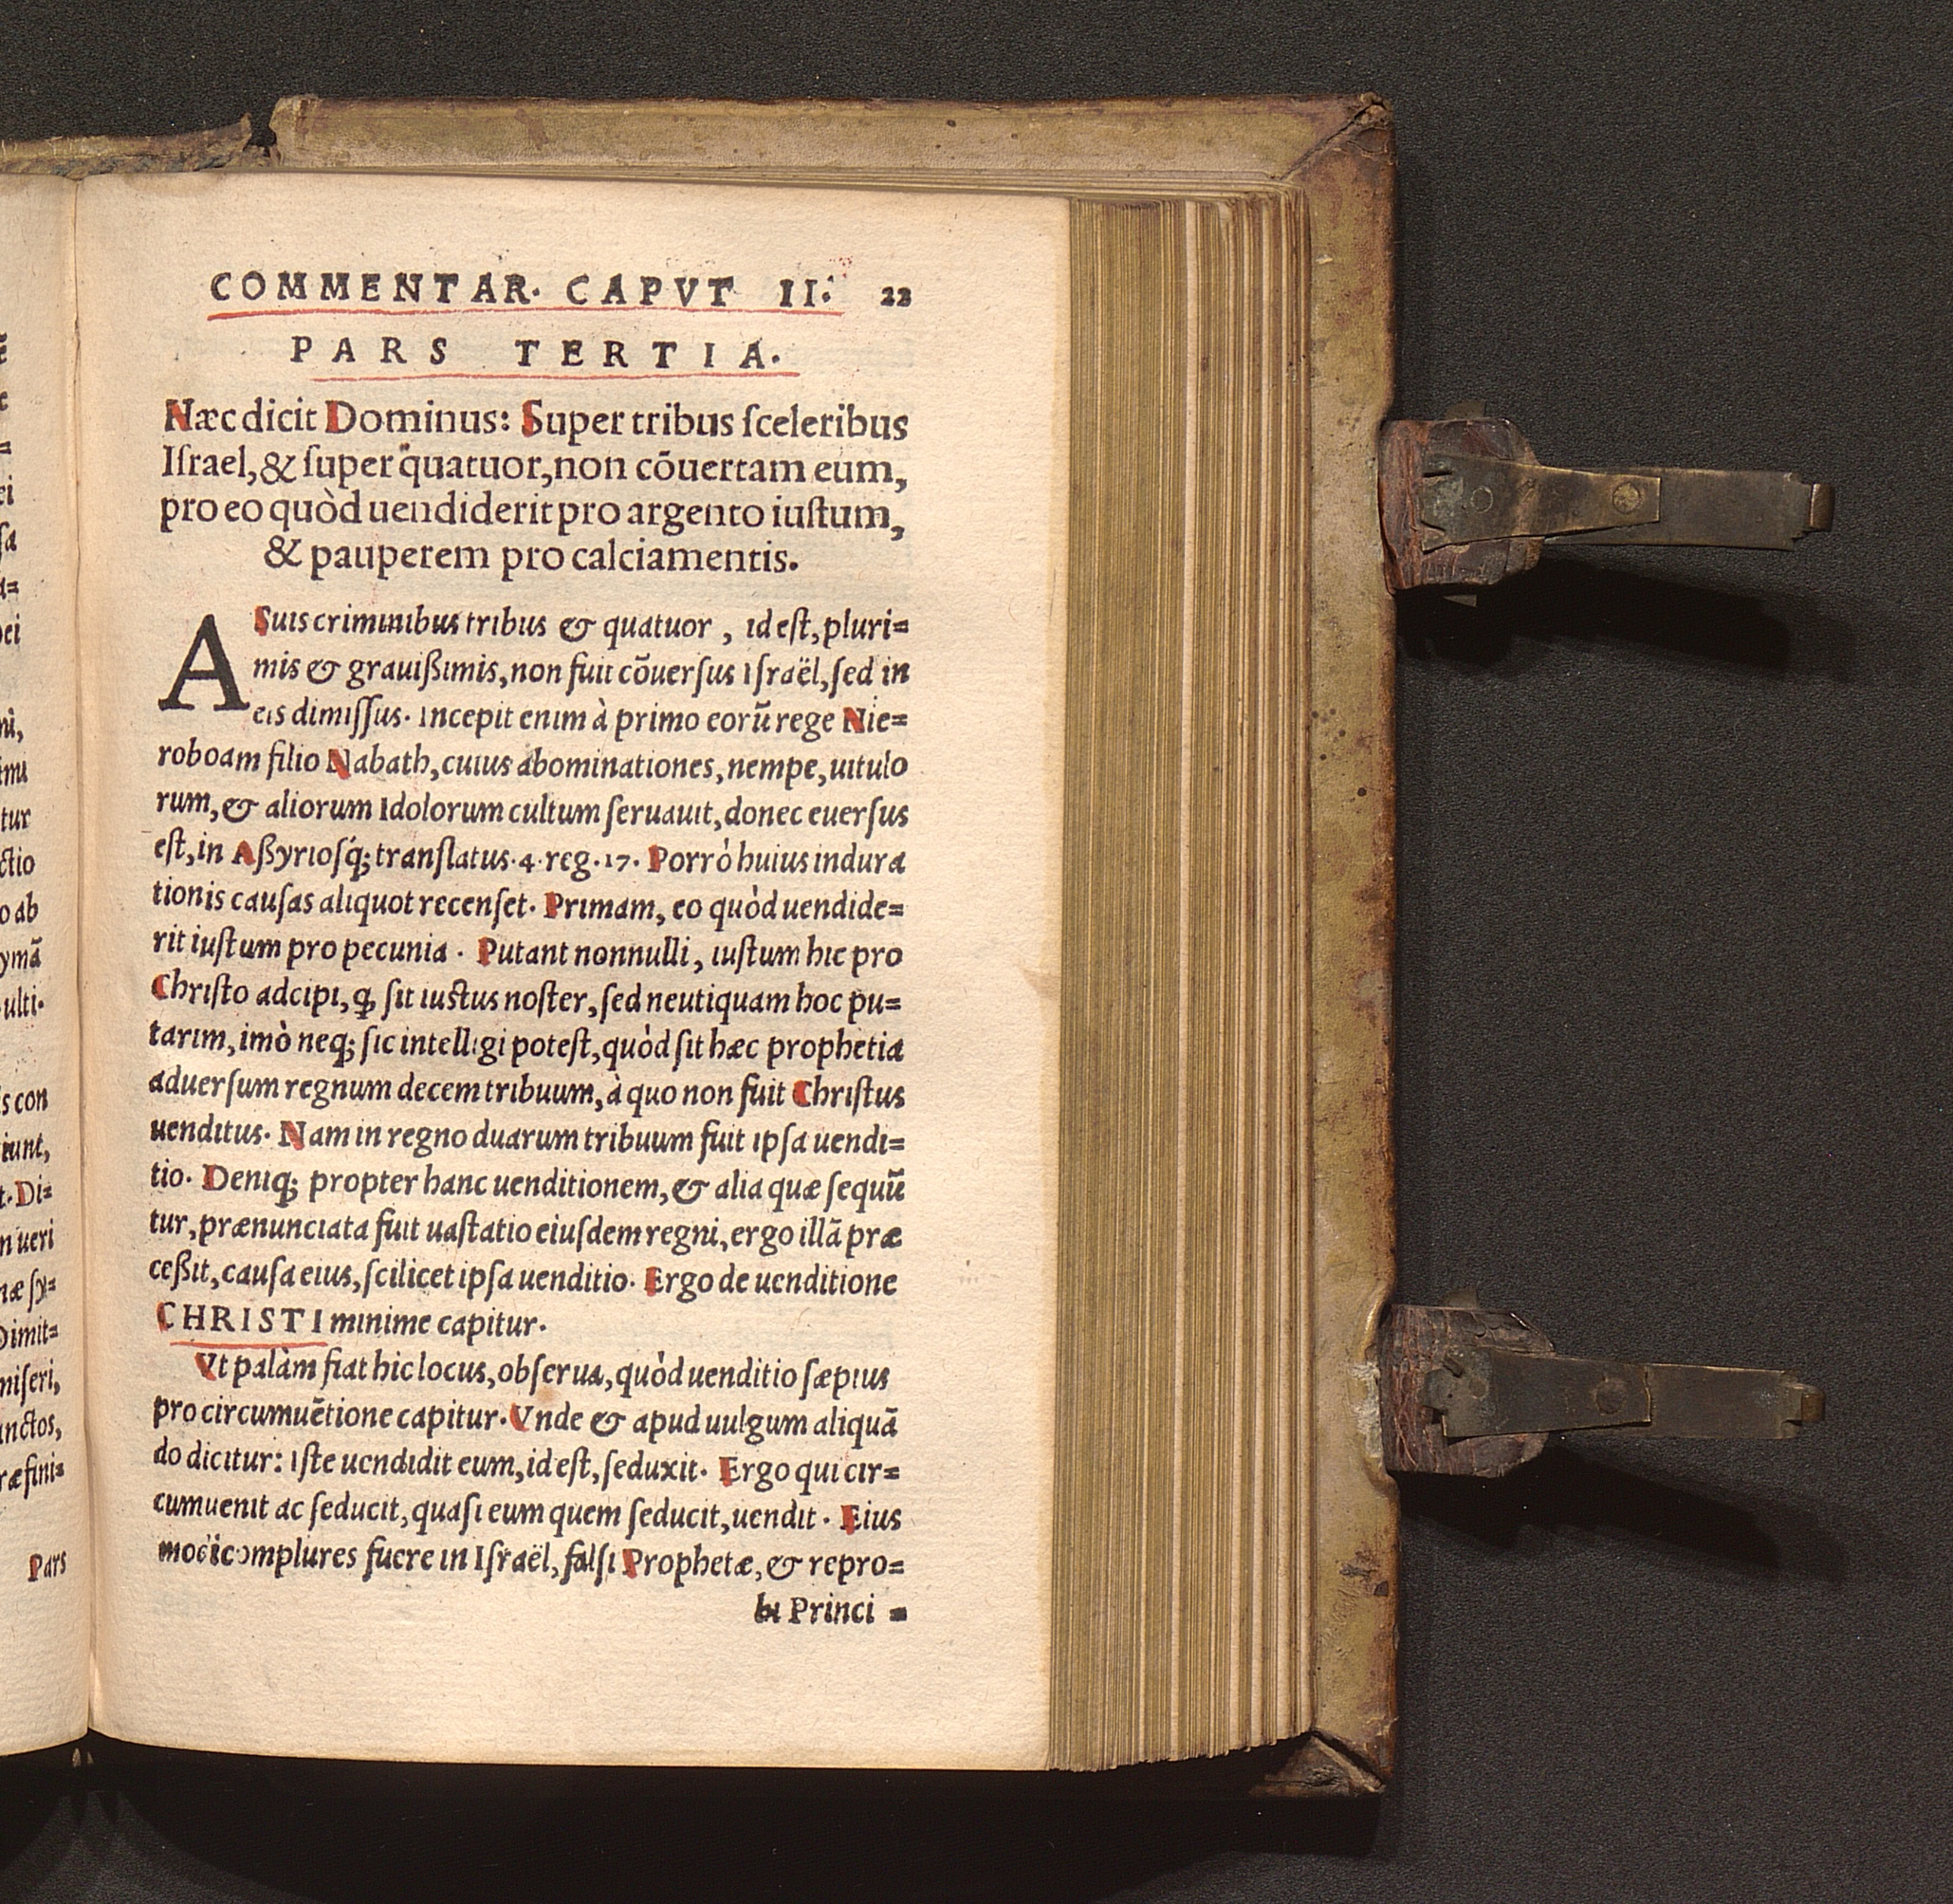 COMMENTAR. CAPVT II. 22
PARS TERTIA.
Næc dicit Dominus: Super tribus ſceleribus
Iſrael, & ſuper quatuor, non cōuertam eum,
pro eo quòd uendiderit pro argento iuſtum,
& pauperem pro calciamentis.
A Suis criminibus tribus & quatuor, id eſt, pluri=
mis & grauißimis, non fuit cōuerſus Iſraël, ſed in
eis dimiſſus. Incepit enim à primo eorū rege Nie=
roboam filio Nabath, cuius abominationes, nempe, uitulo
rum, & aliorum Idolorum cultum ſeruauit, donec euerſus
eſt, in Aßyrioſq; tranſlatus. 4. reg. 17. Porrò huius indura
tionis cauſas aliquot recenſet. Primam, eo quòd uendide=
rit iuſtum pro pecunia. Putant nonnulli, iuſtum hic pro
Chriſto adcipi, ꝙ ſit iuctus noſter, ſed neutiquam hoc pu=
tarim, imò neq; ſic intelligi poteſt, quòd ſit hæc prophetia
aduerſum regnum decem tribuum, à quo non fuit Chriſtus
uenditus. Nam in regno duarum tribuum fuit ipſa uendi=
tio. Deniq; propter hanc uenditionem, & alia quæ ſequū
tur, prænunciata fuit uaſtatio eiuſdem regni, ergo illā præ
ceßit, cauſa eius, ſcilicet ipſa uenditio. Ergo de uenditione
CHRISTI minime capitur.
Vt palàm fiat hic locus, obſerua, quòd uenditio ſæpius
pro circumuētione capitur. Vnde & apud uulgum aliquā
do dicitur: Iſte uendidit eum, id eſt, ſeduxit. Ergo qui cir=
cumuenit ac ſeducit, quaſi eum quem ſeducit, uendit. Eius
modi complures fuere in Iſraël, falſi Prophetæ, & repro=
bi Princi=
ei
ſa
a=
ni,
tur
ctio
o ab
ymā
ulti.
s con
iunt,
t. Di=
n ueri
næ ſy=
Dimit=
miſeri,
anctos,
ræfini=
Pars